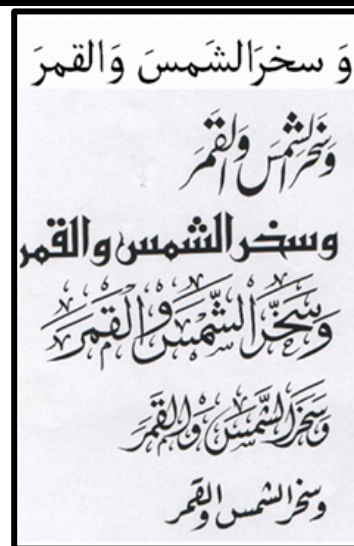 وَ سخرَالشَمسَ وَالقمرَ
وَسَخَّرَ الشَّمسَ وَالقَمَرَ
وسخر الشمس والقمر
وَسَخَّرَ الشَّمْسَ وَالْقَمَرَ
وَسَخَّرَ الشَّمْسَ وَالْقَمَرَ
وسخر الشمس والقمر